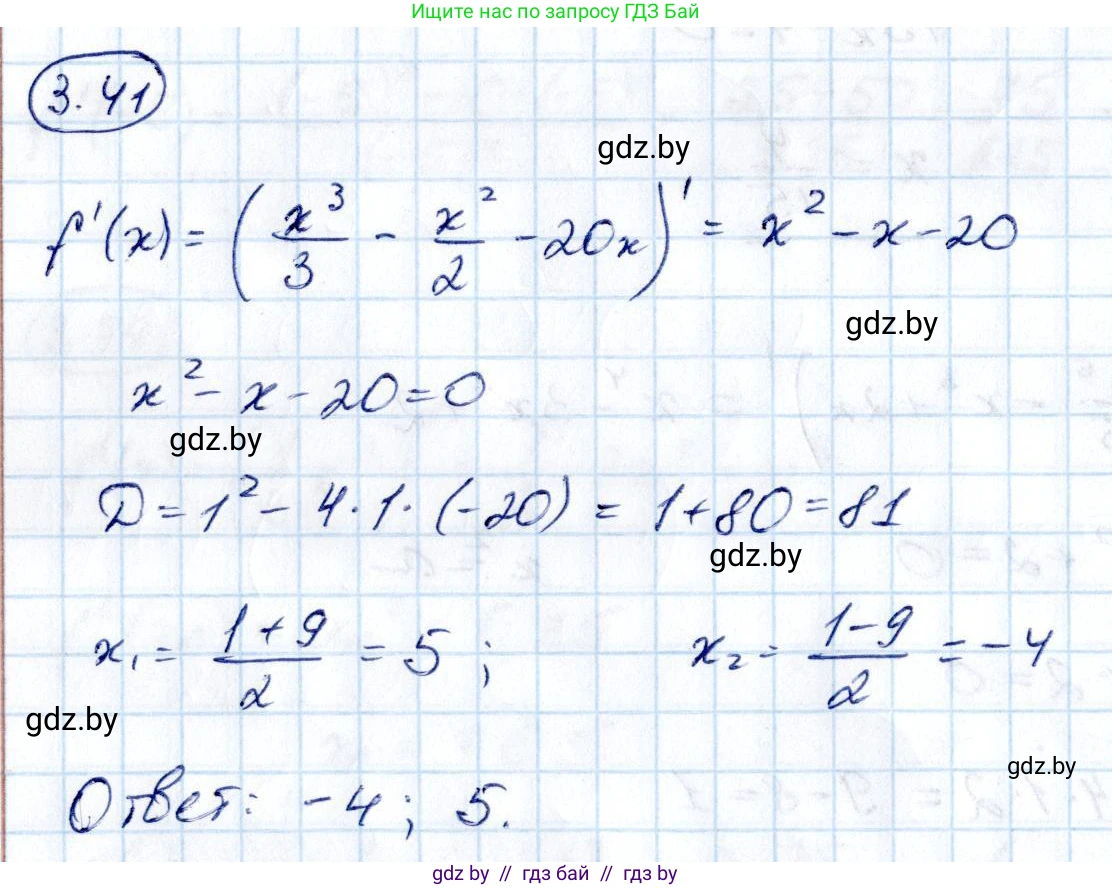 Ищите нас по запросу ГДЗ Бай
3.41
gdz.by
f'(x) = (x³/3 - x²/2 - 20x)' = x² - x - 20
gdz.by
x² - x - 20 = 0
gdz.by
D = 1² - 4·1·(-20) = 1 + 80 = 81
gdz.by
x₁ = (1+9)/2 = 5; x₂ = (1-9)/2 = -4
gdz.by
gdz.by
Ответ: -4; 5.
gdz.by // гдз бай // гдз by